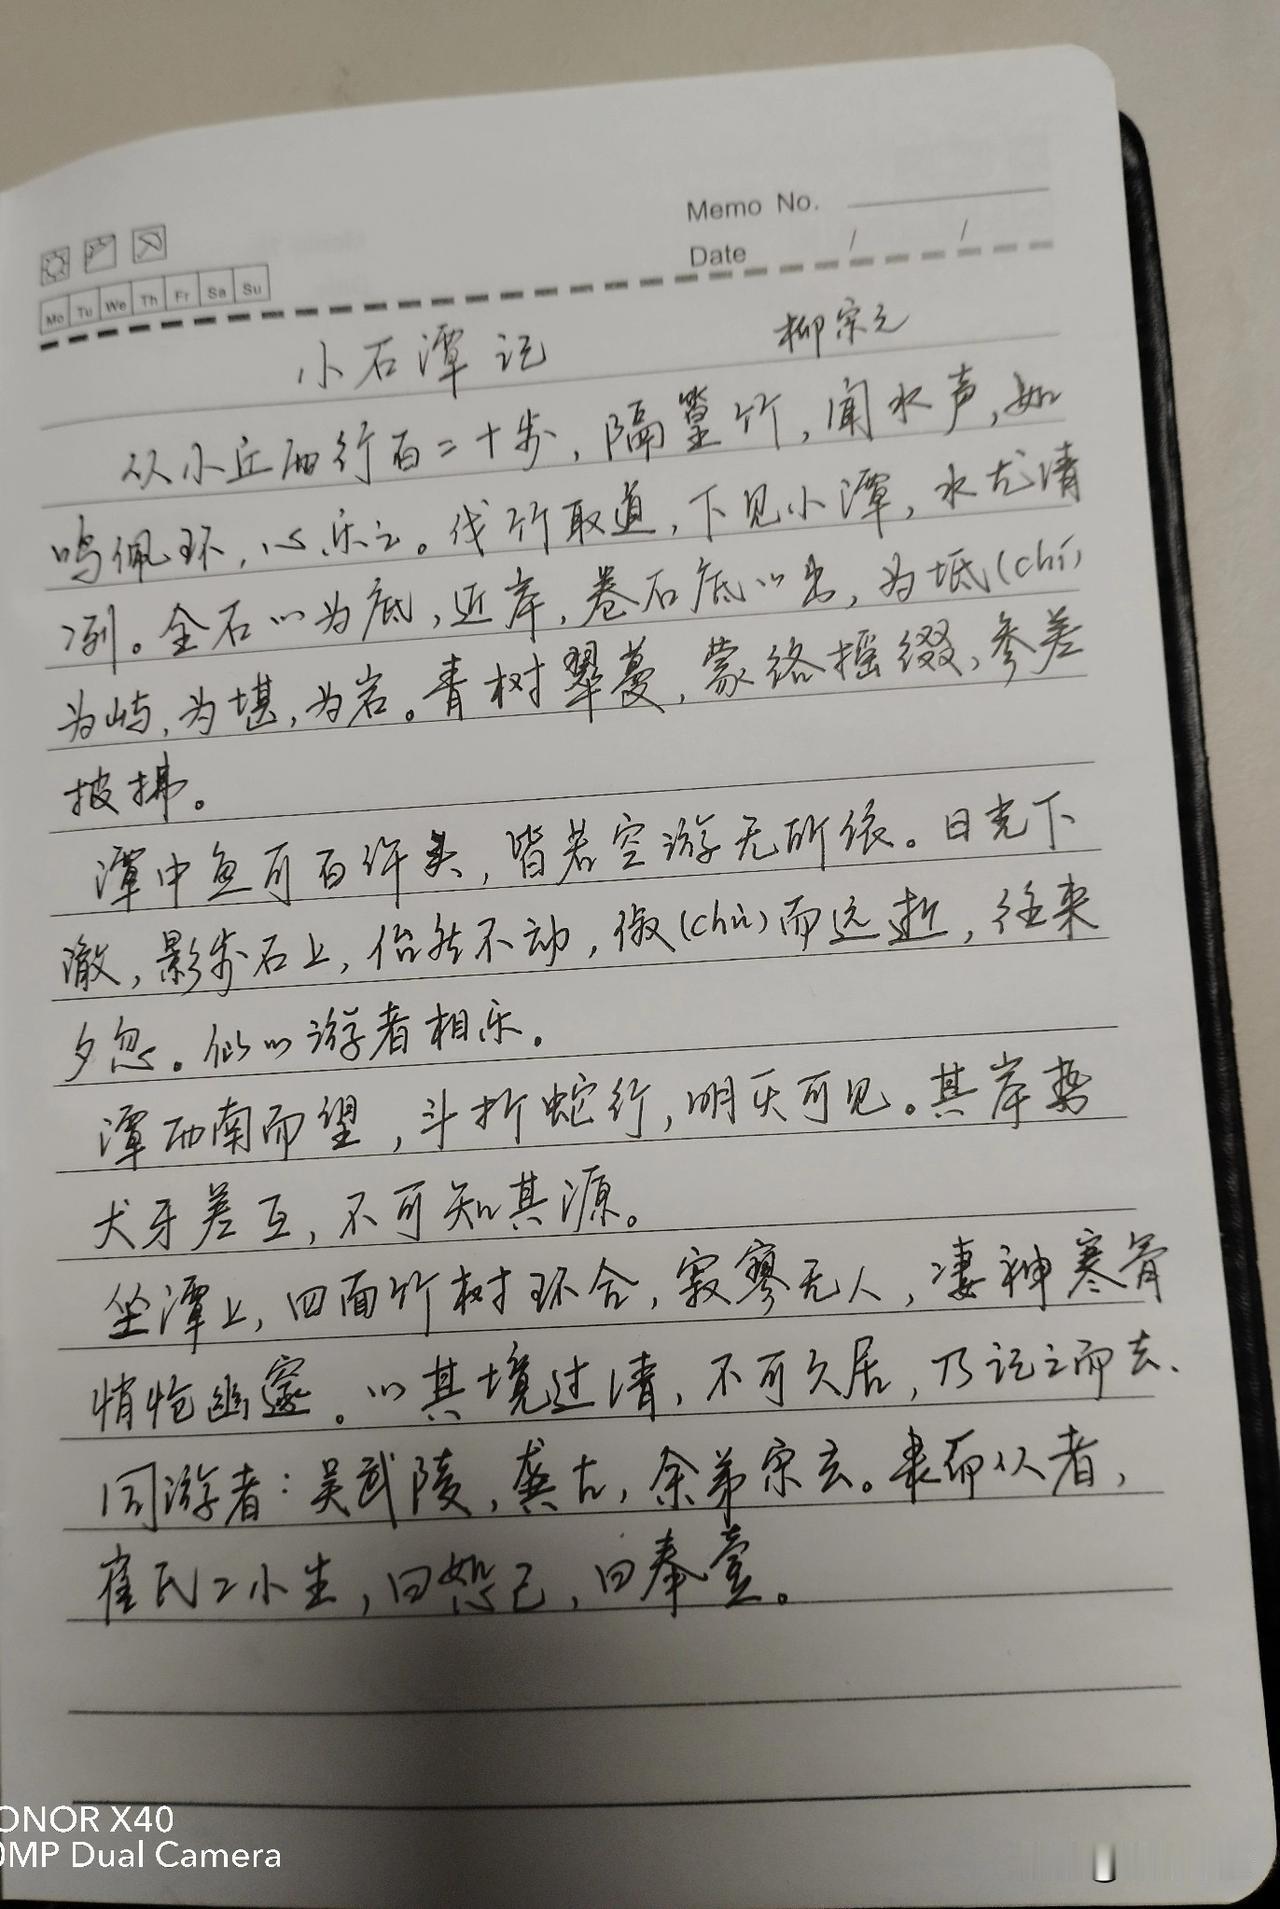 Memo No.
Date / /
Mo Tu We Th Fr Sa Su
小石潭记 柳宗元
从小丘西行百二十步，隔篁竹，闻水声，如
鸣佩环，心乐之。伐竹取道，下见小潭，水尤清
冽。全石以为底，近岸，卷石底以出，为坻(chí)
为屿，为堪，为岩。青树翠蔓，蒙络摇缀，参差
披拂。
潭中鱼可百许头，皆若空游无所依。日光下
澈，影步石上，佁然不动，俶(chù)而远逝，往来
夕忽。似以游者相乐。
潭西南而望，斗折蛇行，明灭可见。其岸势
犬牙差互，不可知其源。
坐潭上，四面竹树环合，寂寥无人，凄神寒骨
悄怆幽邃。以其境过清，不可久居，乃记之而去、
同游者：吴武陵，龚古，余弟宗玄。隶而从者，
崔氏二小生，曰恕己，曰奉壹。
ONOR X40
0MP Dual Camera